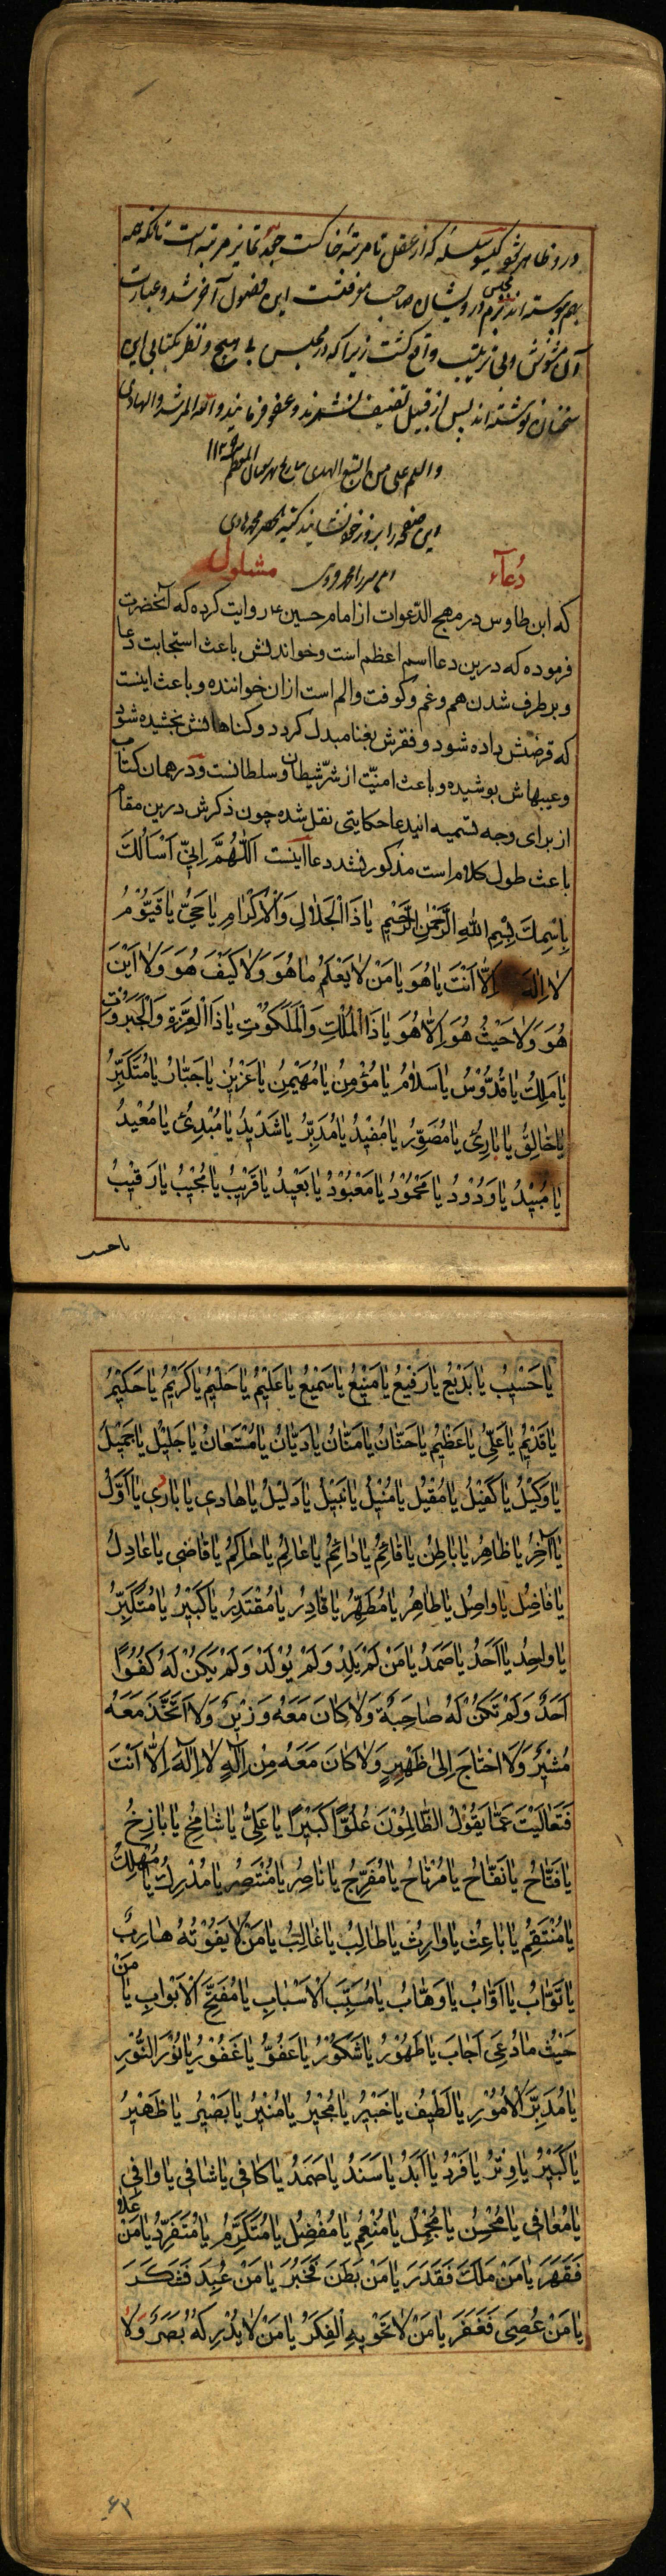 بهم پیوسته اند بزم درویشان صاحب معرفت این فضول آخر شد و عبارت
آن مشوش و بی ترتیب واقع گشت زیرا که در مجلس
سخنان نوشته اند پس از قبیل تصنیف نشمرند و عفو فرمایند والله المرشد والهادی
والسلم علی من اتبع الهدی
این صفحه را بروز
دعاء مشلول
که ابن طاوس در مهج الدعوات از امام حسین ع روایت کرده که آنحضرت
فرموده که درین دعا اسم اعظم است وخواندنش باعث استجابت دعا
و برطرف شدن هم وغم وکوفت والم است ازان خواننده و باعث اینست
که قرضش داده شود وفقرش بغنا مبدل کردد وکناهانش بخشیده شود
وعیبهاش پوشیده وباعث امنیت از شر شیطان وسلطانست ودر همان کتاب
از برای وجه تسمیه ایندعا حکایتی نقل شده چون ذکرش درین مقام
باعث طول کلام است مذکور نشد دعا اینست اَللّٰهُمَّ اِنّیِ اَسْاَلُكَ
بِاِسْمِكَ بِسْمِ اللهِ الرَّحْمٰنِ الرَّحیْمِ یٰا ذَا الْجَلٰالِ وَالْاِکْرٰامِ یٰا حَیُّ یٰا قَیُّوْمُ
لٰا اِلٰهَ اِلّٰا اَنْتَ یٰا هُوَ یٰا مَنْ لٰا یَعْلَمُ مٰا هُوَ وَلٰا کَیْفَ هُوَ وَلٰا اَیْنَ
هُوَ وَلٰا حَیْثُ هُوَ اِلّٰا هُوَ یٰا ذَا الْمُلْكِ وَالْمَلَکُوْتِ یٰا ذَا الْعِزَّةِ وَالْجَبَرُوْتِ
یٰا مَلِكُ یٰا قُدُّوْسُ یٰا سَلٰامُ یٰا مُؤْمِنُ یٰا مُهَیْمِنُ یٰا عَزیْزُ یٰا جَبّٰارُ یٰا مُتَکَبِّرُ
یٰا خٰالِقُ یٰا بٰارِئُ یٰا مُصَوِّرُ یٰا مُفیْدُ یٰا مُدَبِّرُ یٰا شَدیْدُ یٰا مُبْدِئُ یٰا مُعیْدُ
یٰا مُبیْدُ یٰا وَدُوْدُ یٰا مَحْمُوْدُ یٰا مَعْبُوْدُ یٰا بَعیْدُ یٰا قَریْبُ یٰا مُجیْبُ یٰا رَقیْبُ
یا حسیب
یٰا حَسیْبُ یٰا بَدیْعُ یٰا رَفیْعُ یٰا مَنیْعُ یٰا سَمیْعُ یٰا عَلیْمُ یٰا حَلیْمُ یٰا کَریْمُ یٰا حَکیْمُ
یٰا قَدیْمُ یٰا عَلِیُّ یٰا عَظیْمُ یٰا حَنّٰانُ یٰا مَنّٰانُ یٰا دَیّٰانُ یٰا مُسْتَعٰانُ یٰا جَلیْلُ یٰا جَمیْلُ
یٰا وَکیْلُ یٰا کَفیْلُ یٰا مُقیْلُ یٰا مُنیْلُ یٰا نَبیْلُ یٰا دَلیْلُ یٰا هٰادی یٰا بٰاری یٰا اَوَّلُ
یٰا اٰخِرُ یٰا ظٰاهِرُ یٰا بٰاطِنُ یٰا قٰائِمُ یٰا دٰائِمُ یٰا عٰالِمُ یٰا حٰاکِمُ یٰا قٰاضی یٰا عٰادِلُ
یٰا فٰاضِلُ یٰا وٰاصِلُ یٰا طٰاهِرُ یٰا مُطَهِّرُ یٰا قٰادِرُ یٰا مُقْتَدِرُ یٰا کَبیْرُ یٰا مُتَکَبِّرُ
یٰا وٰاحِدُ یٰا اَحَدُ یٰا صَمَدُ یٰا مَنْ لَمْ یَلِدْ وَلَمْ یُوْلَدْ وَلَمْ یَکُنْ لَهُ کُفُوًا
اَحَدٌ وَلَمْ تَکُنْ لَهُ صٰاحِبَةٌ وَلٰا کٰانَ مَعَهُ وَزیْرٌ وَلَا اتَّخَذَ مَعَهُ
مُشیْرً وَلَا احْتٰاجَ اِلیٰ ظَهیْرٍ وَلٰا کٰانَ مَعَهُ مِنْ اِلٰهٍ لٰا اِلٰهَ اِلّٰا اَنْتَ
فَتَعٰالَیْتَ عَمّٰا یَقُوْلُ الظّٰالِمُوْنَ عُلُوًّا کَبیْرًا یٰا عَلِیُّ یٰا شٰامِخُ یٰا بٰاذِخُ
یٰا فَتّٰاحُ یٰا نَفّٰاحُ یٰا مُرْتٰاحُ یٰا مُفَرِّجُ یٰا نٰاصِرُ یٰا مُنْتَصِرُ یٰا مُدْرِكُ یٰا مُهْلِكُ
یٰا مُنْتَقِمُ یٰا بٰاعِثُ یٰا وٰارِثُ یٰا طٰالِبُ یٰا غٰالِبُ یٰا مَنْ لٰا یَفُوْتُهُ هٰارِبٌ
یٰا تَوّٰابُ یٰا اَوّٰابُ یٰا وَهّٰابُ یٰا مُسَبِّبَ الْاَسْبٰابِ یٰا مُفَتِّحَ الْاَبْوٰابِ یٰا مَنْ
حَیْثُ مٰا دُعِیَ اَجٰابَ یٰا طَهُوْرُ یٰا شَکُوْرُ یٰا عَفُوُّ یٰا غَفُوْرُ یٰا نُوْرَ النُّوْرِ
یٰا مُدَبِّرَ الْاُمُوْرِ یٰا لَطیْفُ یٰا خَبیْرُ یٰا مُجیْرُ یٰا مُنیْرُ یٰا بَصیْرُ یٰا ظَهیْرُ
یٰا کَبیْرُ یٰا وِتْرُ یٰا فَرْدُ یٰا اَبَدُ یٰا سَنَدُ یٰا صَمَدُ یٰا کٰافی یٰا شٰافی یٰا وٰافی
یٰا مُعٰافی یٰا مُحْسِنُ یٰا مُجْمِلُ یٰا مُنْعِمُ یٰا مُفْضِلُ یٰا مُتَکَرِّمُ یٰا مُتَفَرِّدُ یٰا مَنْ عَلٰا
فَقَهَرَ یٰا مَنْ مَلَكَ فَقَدَرَ یٰا مَنْ بَطَنَ فَخَبُرَ یٰا مَنْ عُبِدَ فَشَکَرَ
یٰا مَنْ عُصِیَ فَغَفَرَ یٰا مَنْ لٰا تَحْویْهِ الْفِکَرُ یٰا مَنْ لٰا یُدْرِکُهُ بَصَرٌ وَلٰا
۶۳